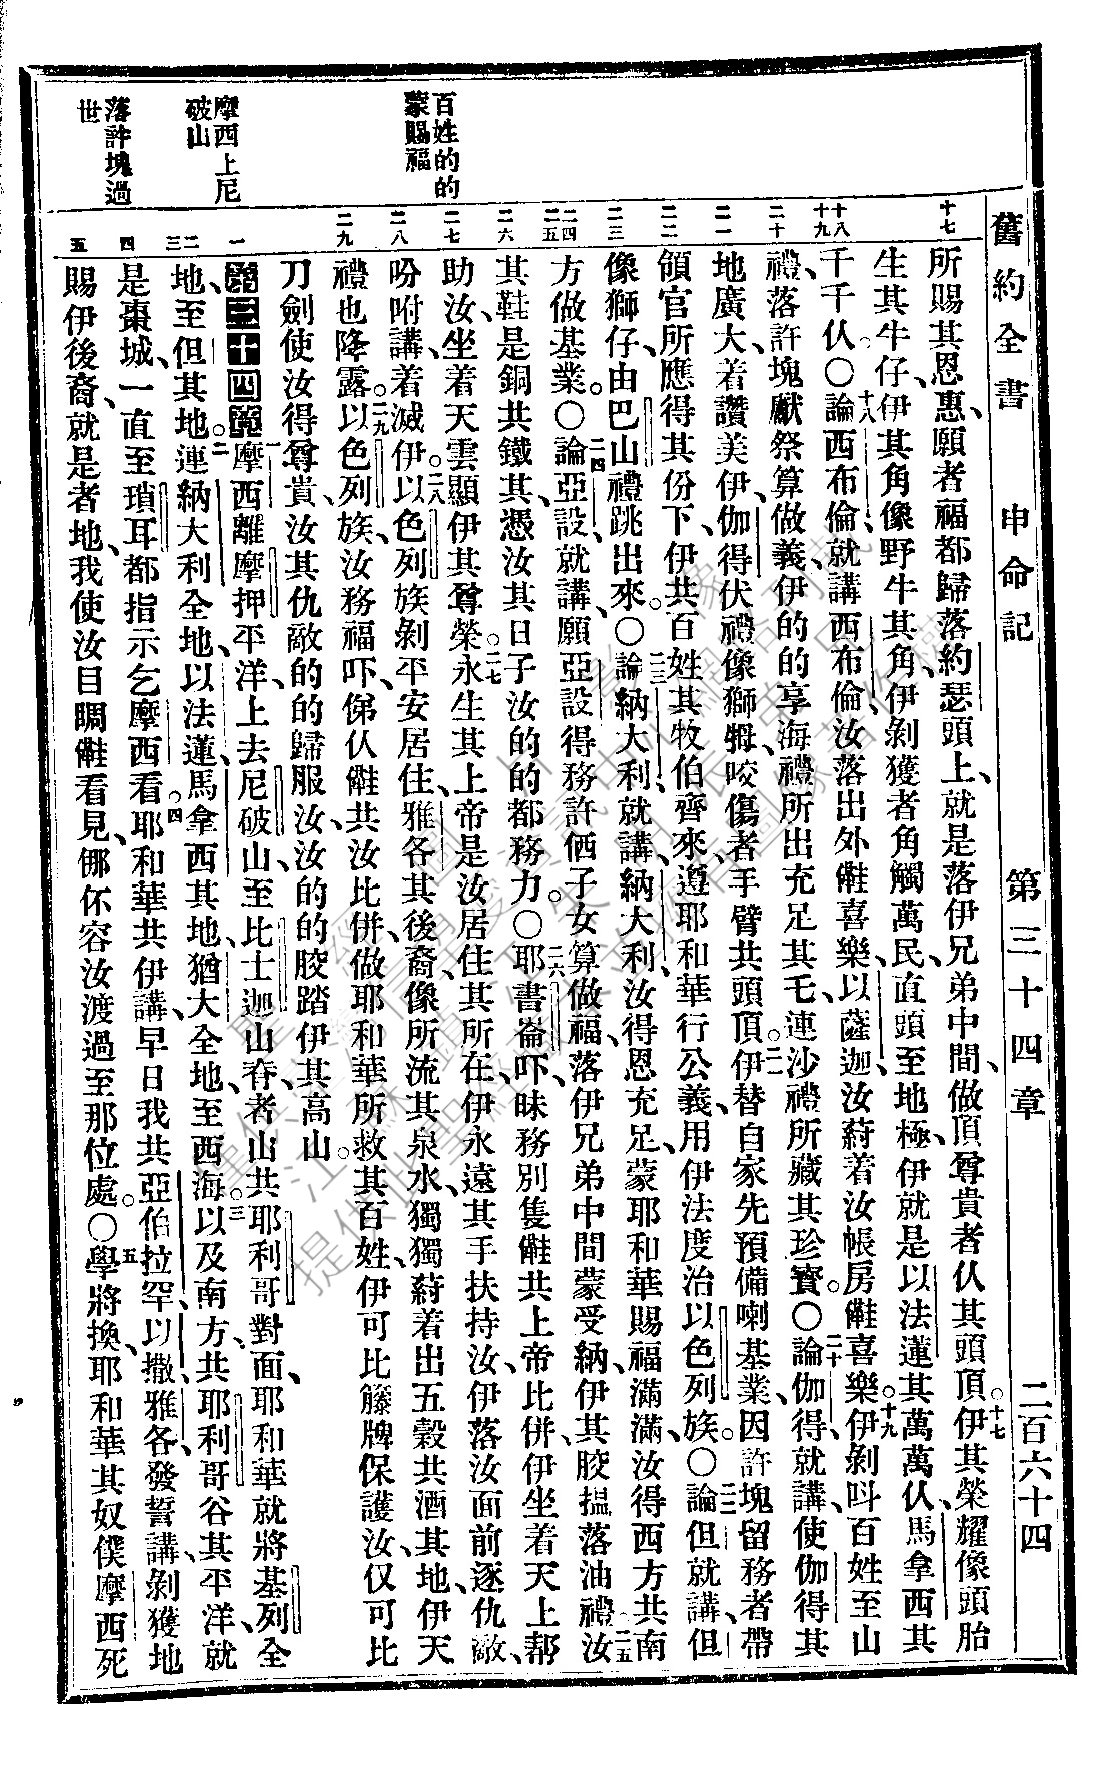 舊約全書 申命記 第三十四章 二百六十四
百姓的的
蒙賜福
摩西上尼
破山
落許塊過
世
十七
十八
十九
二十
二一
二二
二三
二四
二五
二六
二七
二八
二九
一
二
三
四
五
所賜其恩惠、願者福都歸落約瑟頭上、就是落伊兄弟中間、做頂尊貴者仈其頭頂。十七伊其榮耀像頭胎
生其牛仔、伊其角像野牛其角、伊剝獲者角觸萬民、直頭至地極、伊就是以法蓮其萬萬仈、馬拿西其
千千仈。〇十八論西布倫就講、西布倫汝落出外喜樂、以薩迦汝著汝帳房喜樂。十九伊剝叫百姓至山
禮、落許塊獻祭算做義、伊的的享海禮所出充足其乇、連沙禮所藏其珍寶。〇二十論伽得就講、使伽得其
地廣大、着讚美伊、伽得伏禮像獅母、咬傷者手臂共頭頂。二一伊替自家先預備喇基業、因許塊留務者帶
領官所應得其份下、伊共百姓其牧伯齊來、遵耶和華行公義、用伊法度治以色列族。〇二二論但就講、但
像獅仔、由巴山禮跳出來。〇二三論納大利就講、納大利、汝得恩充足、蒙耶和華賜福滿滿、汝得西方共南
方做基業。〇二四論亞設就講、願亞設得務許価子女算做福、落伊兄弟中間蒙受納、伊其骹搵落油禮。二五汝
其鞋是銅共鐵其、憑汝其日子汝的的都務力。〇二六耶書崙吓、昧務別隻共上帝比併、伊坐着天上幫
助汝、坐着天雲顯伊其尊榮。二七永生其上帝是汝居住其所在、伊永遠其手扶持汝、伊落汝面前逐仇敵、
吩咐講、着滅伊。二八以色列族剝平安居住、雅各其後裔、像所流其泉水、獨獨著着出五穀共酒其地、伊天
禮也降露。二九以色列族、汝務福吓、俤仈共汝比併、做耶和華所救其百姓、伊可比籐牌保護汝、仅可比
刀劍使汝得尊貴、汝其仇敵的的歸服汝、汝的的骹踏伊其高山。
第三十四章 一摩西離摩押平洋、上去尼破山、至比士迦山脊、者山共耶利哥對面、耶和華就將基列全
地、至但其地。二連納大利全地、以法蓮、馬拿西其地、猶大全地、至西海。三以及南方共耶利哥谷其平洋、就
是棗城、一直至瑣耳、都指示乞摩西看。四耶和華共伊講、早日我共亞伯拉罕、以撒、雅各發誓講、剝獲地
賜伊後裔、就是者地、我使汝目睭看見、㑚伓容汝渡過至那位處。〇五學將換、耶和華其奴僕摩西死